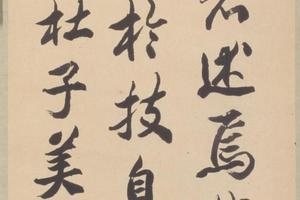 述焉
於技自
杜子美